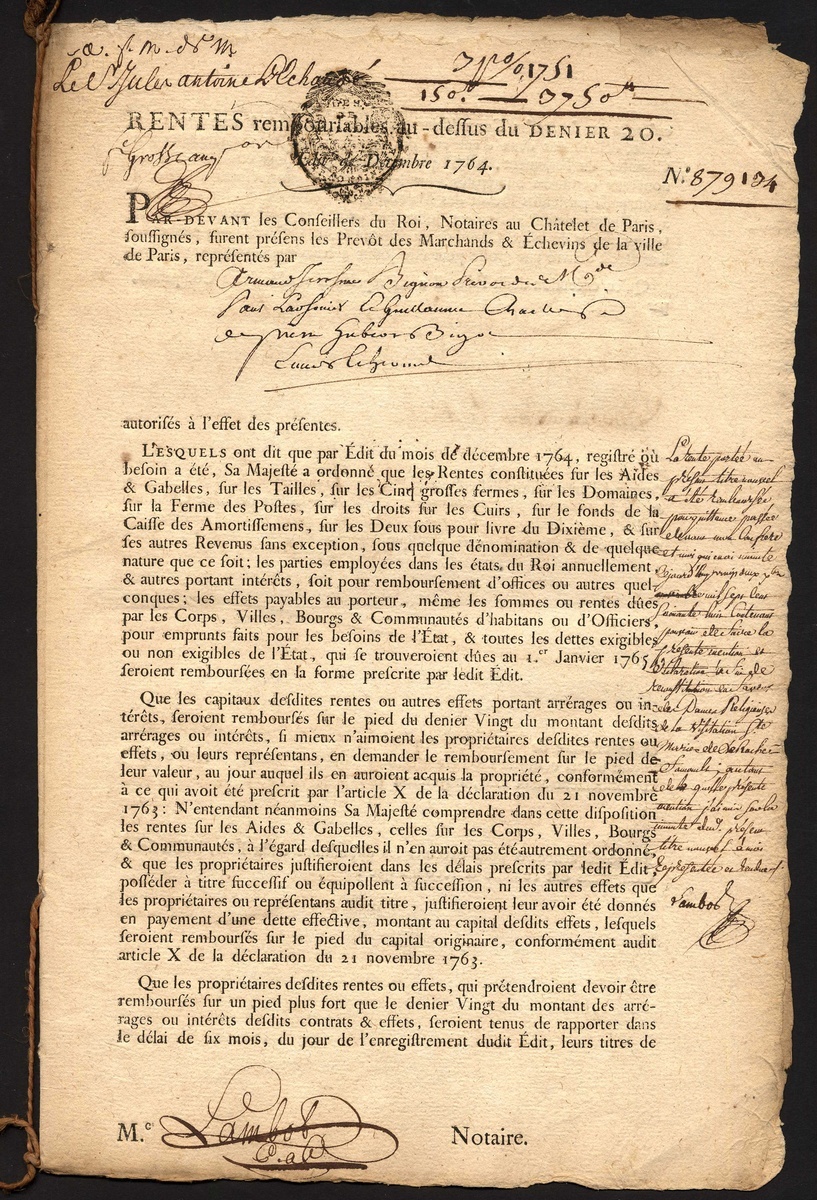 Le Sr Jules antoine
1751
150 3750
RENTES remboursables au-dessus du DENIER 20.
Edit de Décembre 1764.
N.o 879134
PAR-DEVANT les Conseillers du Roi, Notaires au Châtelet de Paris,
soussignés, furent présens les Prevôt des Marchands & Échevins de la ville
de Paris, représentés par
Bignon
Hubert Bigot
autorisés à l'effet des présentes.
LESQUELS ont dit que par Édit du mois de décembre 1764, registré où
besoin a été, Sa Majesté a ordonné que les Rentes constituées sur les Aides
& Gabelles, sur les Tailles, sur les Cinq grosses fermes, sur les Domaines,
sur la Ferme des Postes, sur les droits sur les Cuirs, sur le fonds de la
Caisse des Amortissemens, sur les Deux sous pour livre du Dixième, & sur
ses autres Revenus sans exception, sous quelque dénomination & de quelque
nature que ce soit; les parties employées dans les états du Roi annuellement
& autres portant intérêts, soit pour remboursement d'offices ou autres quel-
conques; les effets payables au porteur, même les sommes ou rentes dûes
par les Corps, Villes, Bourgs & Communautés d'habitans ou d'Officiers,
pour emprunts faits pour les besoins de l'État, & toutes les dettes exigibles
ou non exigibles de l'État, qui se trouveroient dûes au 1.er Janvier 1765,
seroient remboursées en la forme prescrite par ledit Édit.
Que les capitaux desdites rentes ou autres effets portant arrérages ou in-
térêts, seroient remboursés sur le pied du denier Vingt du montant desdits
arrérages ou intérêts, si mieux n'aimoient les propriétaires desdites rentes ou
effets, ou leurs représentans, en demander le remboursement sur le pied de
leur valeur, au jour auquel ils en auroient acquis la propriété, conformément
à ce qui avoit été prescrit par l'article X de la déclaration du 21 novembre
1763: N'entendant néanmoins Sa Majesté comprendre dans cette disposition
les rentes sur les Aides & Gabelles, celles sur les Corps, Villes, Bourgs
& Communautés, à l'égard desquelles il n'en auroit pas été autrement ordonné,
& que les propriétaires justifieroient dans les délais prescrits par ledit Édit,
posséder à titre successif ou équipollent à succession, ni les autres effets que
les propriétaires ou représentans audit titre, justifieroient leur avoir été donnés
en payement d'une dette effective, montant au capital desdits effets, lesquels
seroient remboursés sur le pied du capital originaire, conformément audit
article X de la déclaration du 21 novembre 1763.
Que les propriétaires desdites rentes ou effets, qui prétendroient devoir être
remboursés sur un pied plus fort que le denier Vingt du montant des arré-
rages ou intérêts desdits contrats & effets, seroient tenus de rapporter dans
le délai de six mois, du jour de l'enregistrement dudit Édit, leurs titres de
La rente portée au
présent titre nouvel
a été remboursée
par quittance passée
mil sept cent
présente mention et
Dames Religieuses
de la Visitation Ste
Marie de
présente
mention
titre nouvel
Lambot
M.e Lambot Notaire.